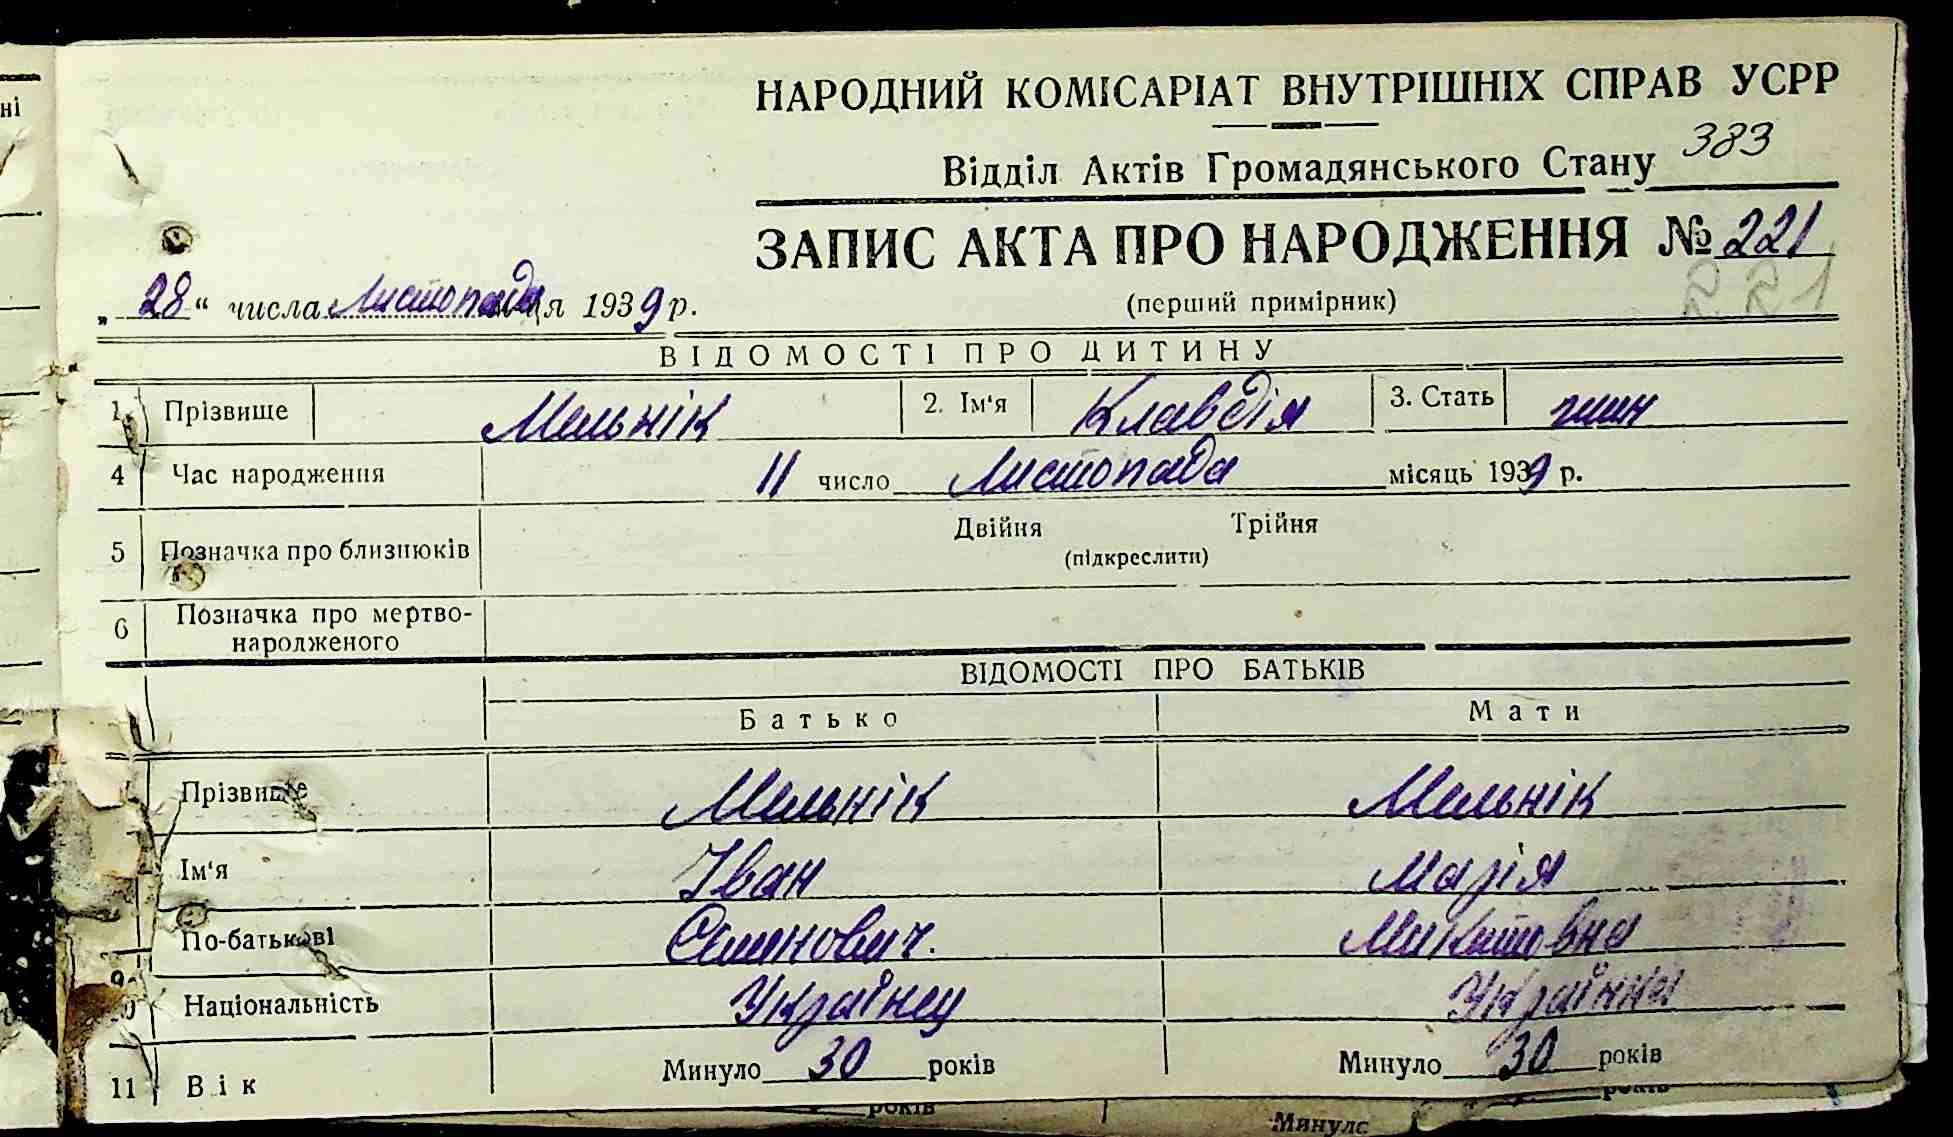 ні
НАРОДНИЙ КОМІСАРІАТ ВНУТРІШНІХ СПРАВ УСРР
383
Відділ Актів Громадянського Стану
ЗАПИС АКТА ПРО НАРОДЖЕННЯ № 221
„28“ числа Листопада місяця 1939 р.
(перший примірник)
221
ВІДОМОСТІ ПРО ДИТИНУ
1. Прізвище Мельнік 2. Ім'я Клавдія 3. Стать жин
4 Час народження 11 число Листопада місяць 1939 р.
5 Позначка про близнюків Двійня Трійня
(підкреслити)
6 Позначка про мертво-
народженого
ВІДОМОСТІ ПРО БАТЬКІВ
Батько Мати
Прізвище Мельнік Мельнік
Ім'я Іван Марія
9 По-батькові Семенович. Микитовна
Національність Українец Українка
11 Вік Минуло 30 років Минуло 30 років
років Минуло років